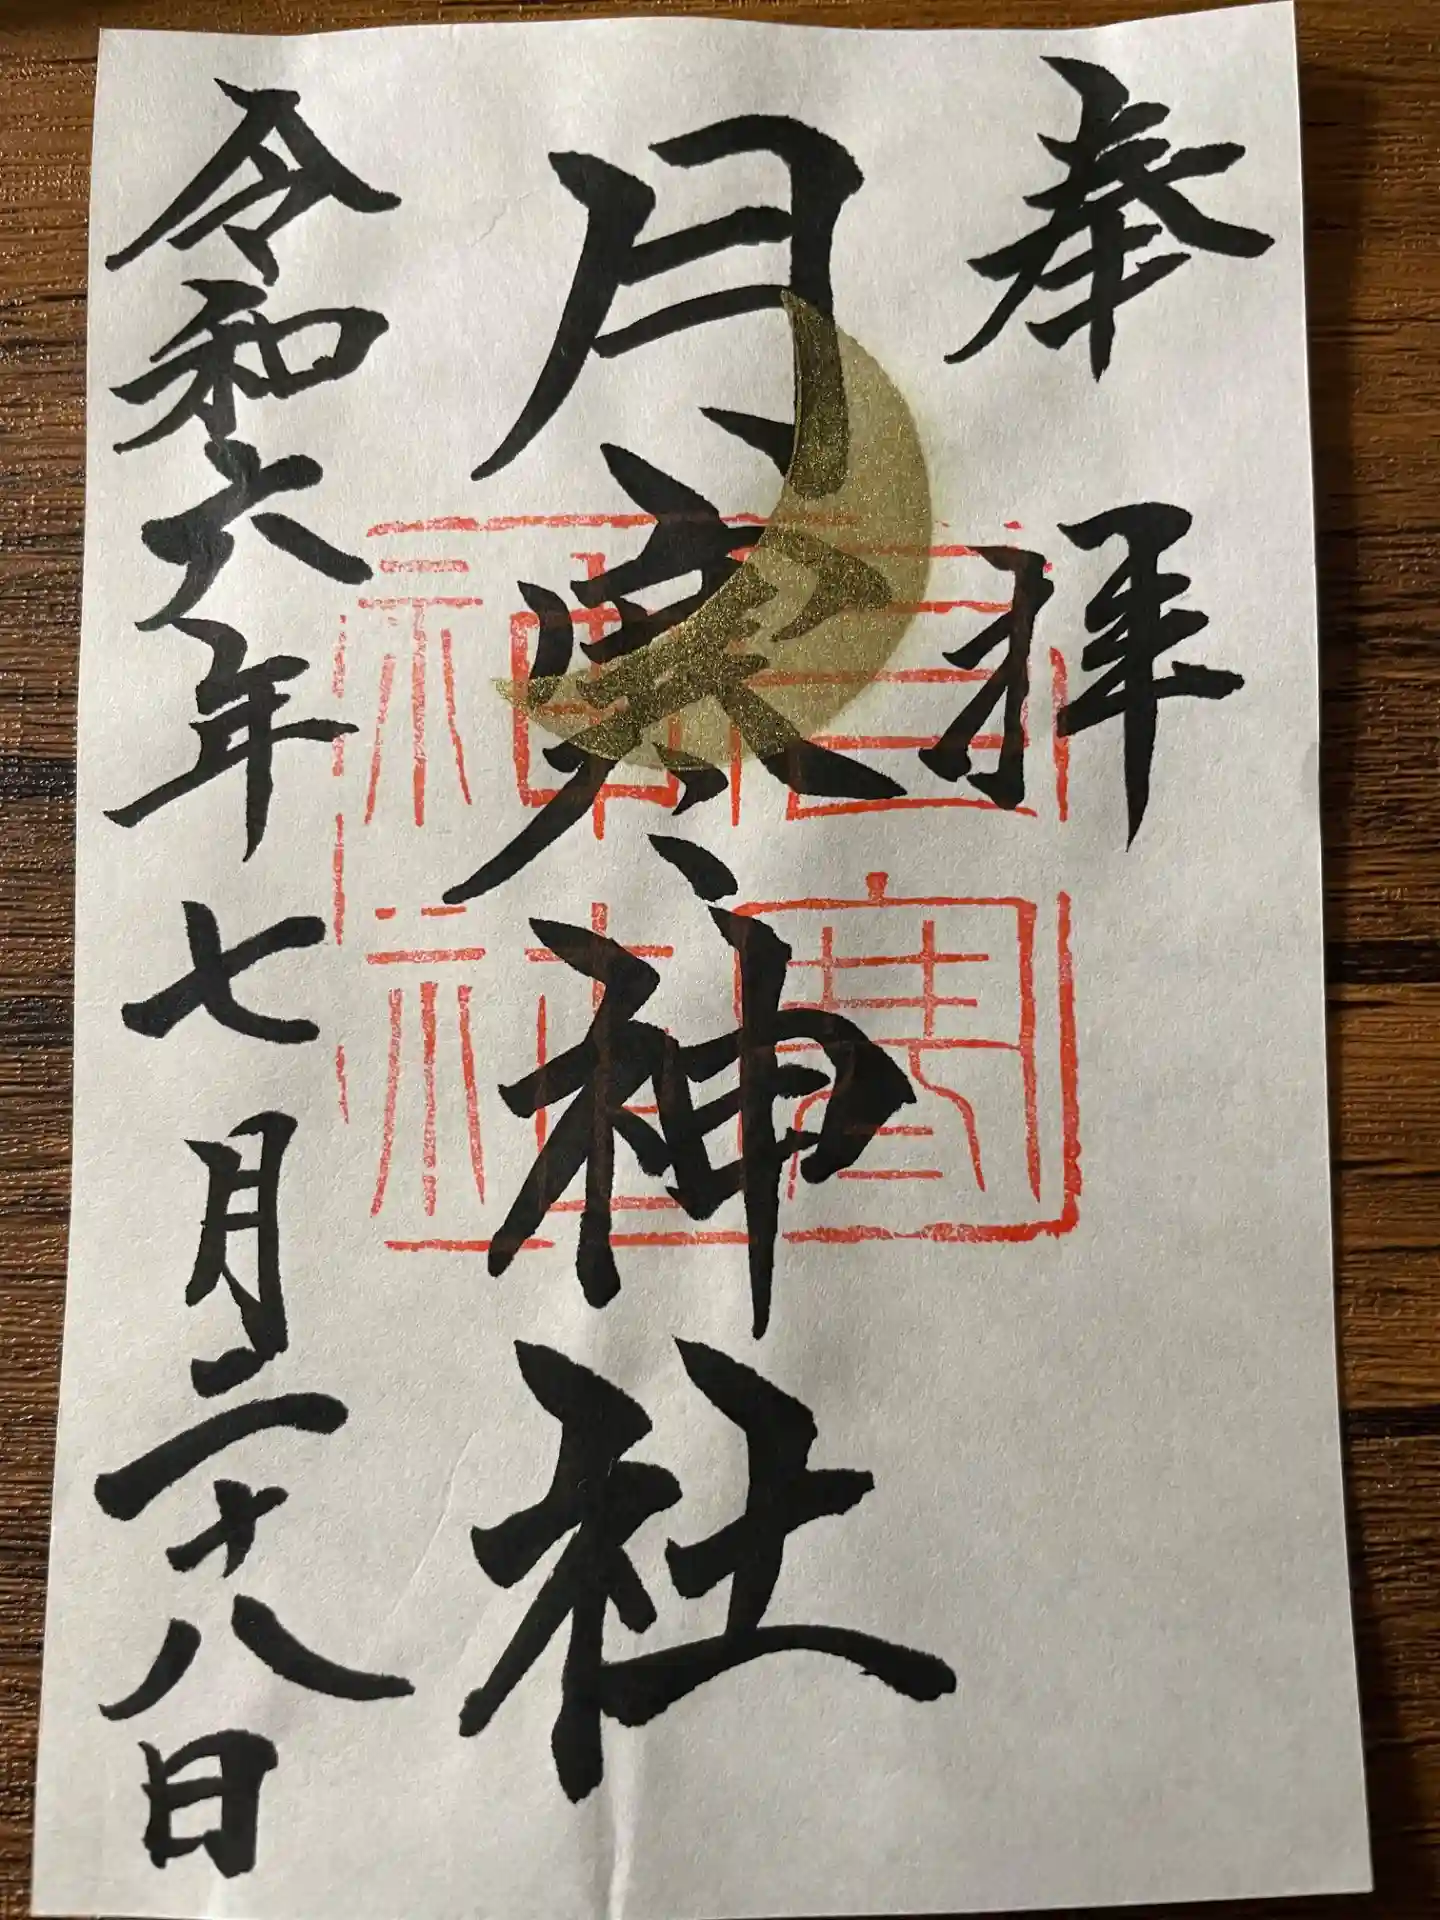 奉拝
月寒神社
令和六年七月二十八日
月寒
神社